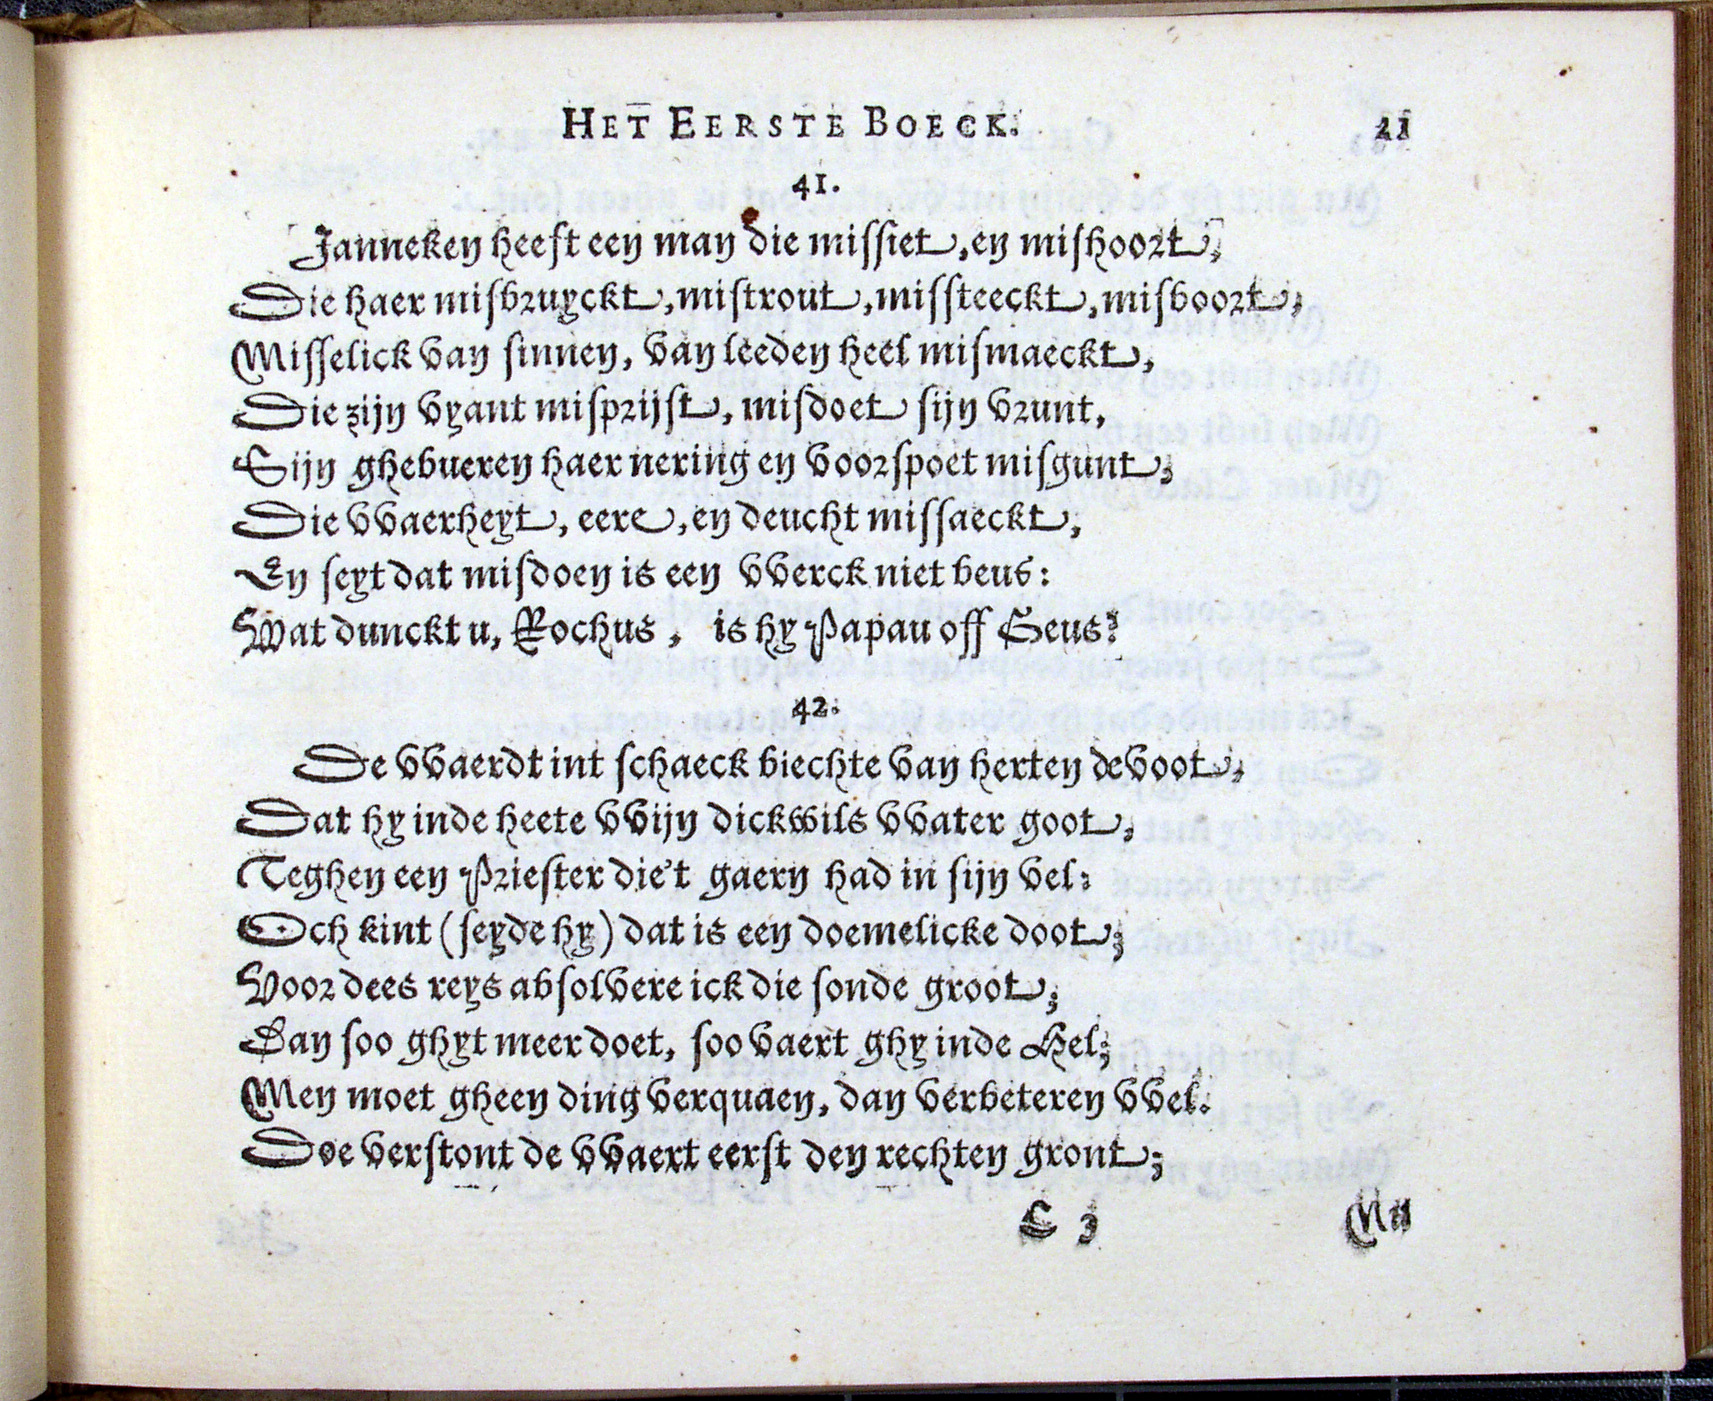 HET EERSTE BOECK. 21
41.
Janneken heeft een man die missiet, en mishoort,
Die haer misbruyckt, mistrout, missteeckt, misboort;
Misselick van sinnen, van leeden heel mismaeckt,
Die zijn vyant misprijst, misdoet sijn vrunt,
Sijn ghebueren haer nering en voorspoet misgunt;
Die vvaerheyt, eere, en deucht missaeckt,
En seyt dat misdoen is een vverck niet beus:
Wat dunckt u, Rochus, is hy Papau off Geus?
42.
De vvaerdt int schaeck biechte van herten devoot,
Dat hy inde heete vvijn dickwils vvater goot,
Teghen een Priester die't gaern had in sijn vel:
Och kint (seyde hy) dat is een doemelicke doot;
Voor dees reys absolvere ick die sonde groot;
Dan soo ghyt meer doet, soo vaert ghy inde Hel;
Men moet gheen ding verquaen, dan verbeteren vvel.
Doe verstont de vvaert eerst den rechten gront;
C 3 Nu